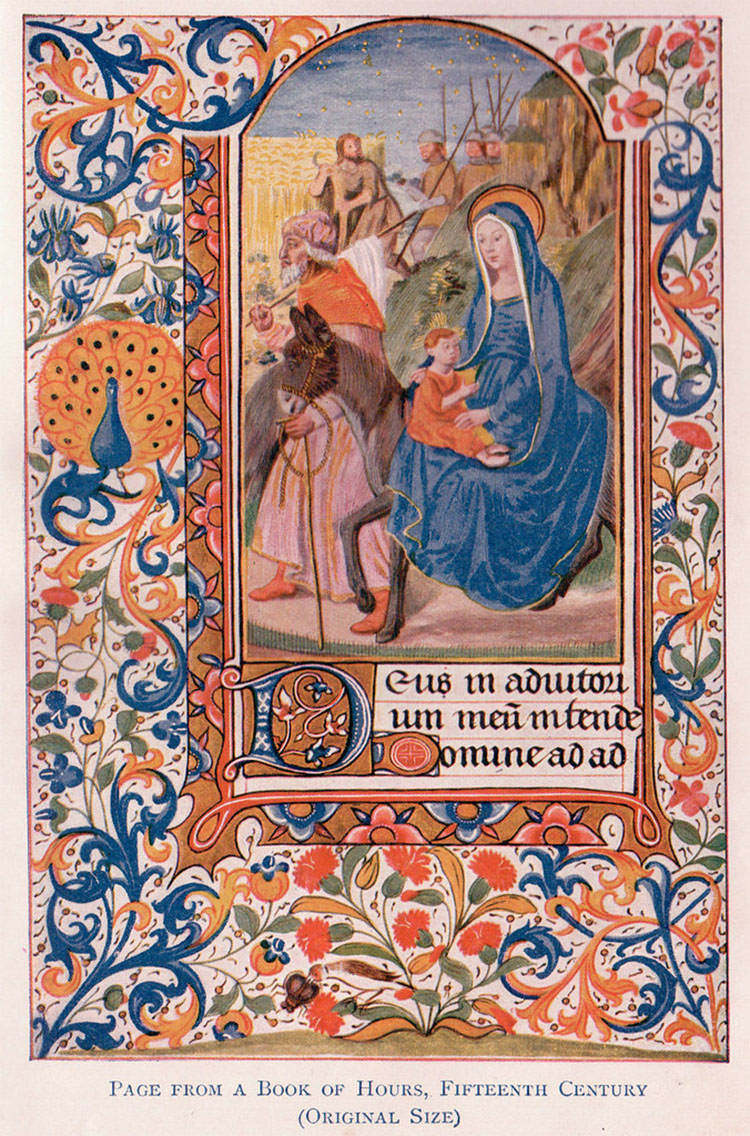 Deus in adiutori
um meū intende
Domine ad ad
PAGE FROM A BOOK OF HOURS, FIFTEENTH CENTURY
(ORIGINAL SIZE)